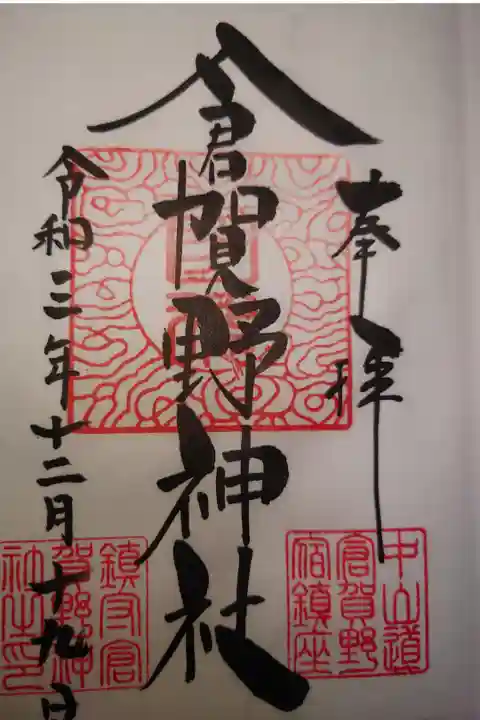 奉拝
中山道
倉賀野
宿鎮座
倉賀野神社
令和三年十二月十九日
鎮守倉
賀野神
社之印